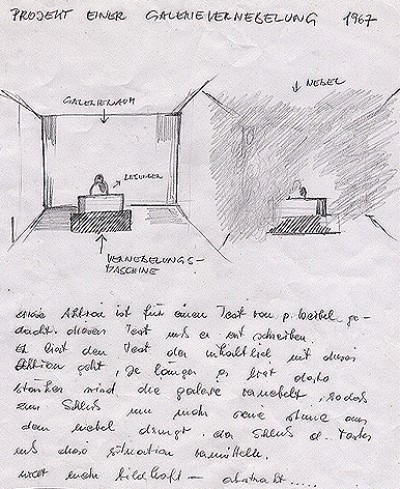 PROJEKT EINER GALERIEVERNEBELUNG 1967
NEBEL
GALERIERAUM
LESUNGER
VERNEBELUNGS-
MASCHINE
diese Aktion ist für einen Text von p. weibel ge-
dacht. diesen Text muß er erst schreiben.
er liest den Text der inhaltlich mit dieser
Aktion geht, je länger er liest desto
stärker wird die galerie vernebelt, sodaß
zum Schluß nur mehr seine stimme aus
dem nebel dringt. der Schluß d. Textes
muß diese situation vermitteln.
nicht mehr bildhaft – abstrakt.....